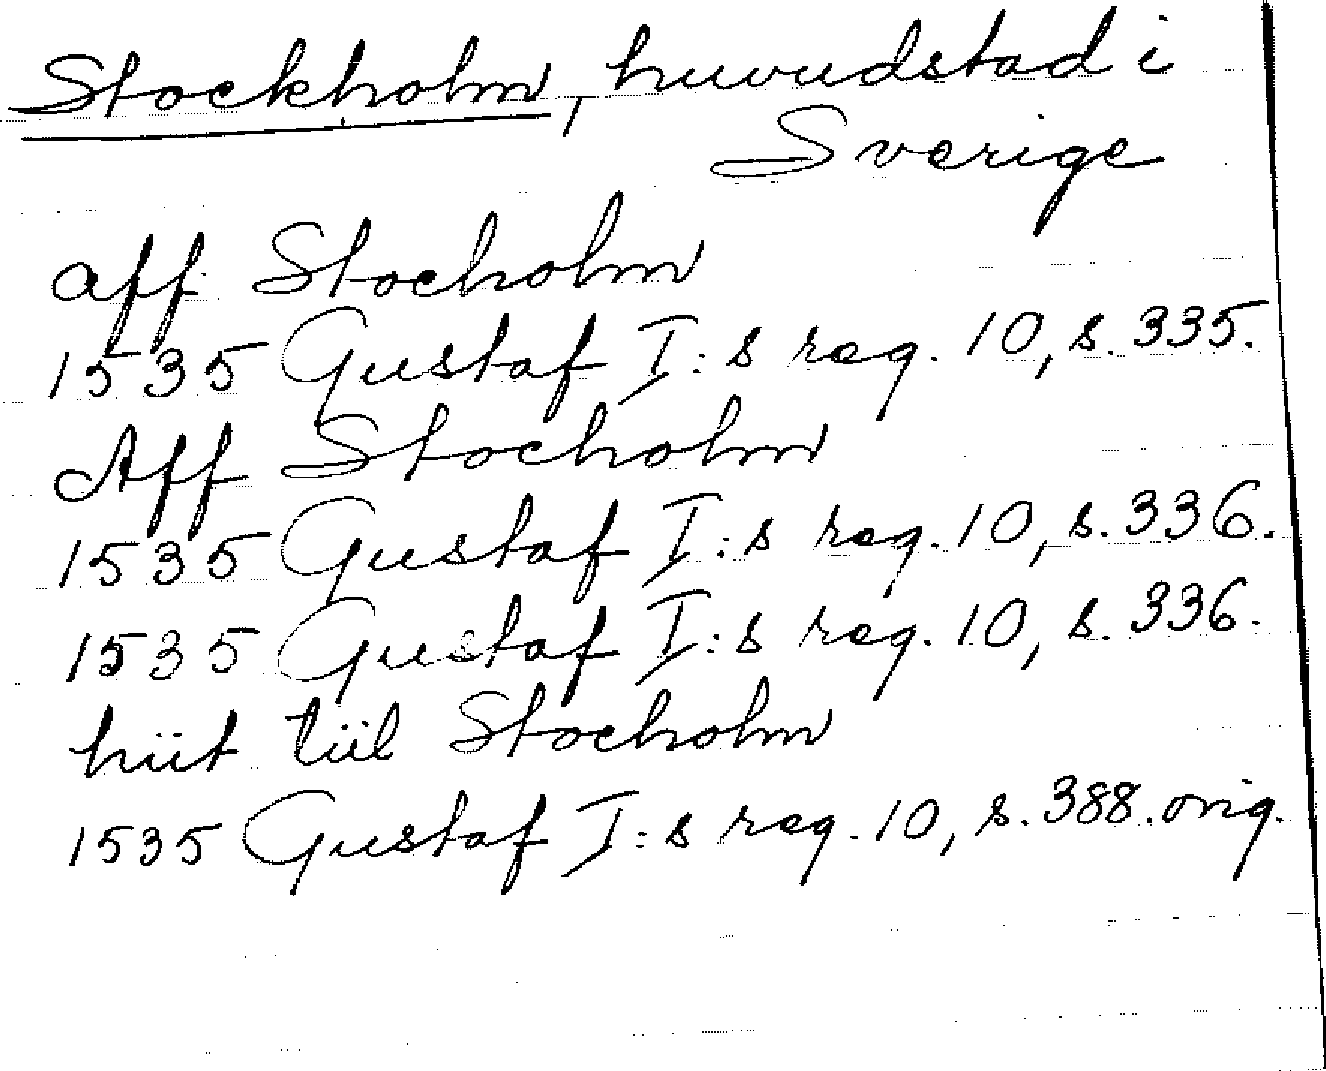 Stockholm, huvudstad i
Sverige
aff Stocholm
1535 Gustaf I:s reg. 10, s. 335.
Aff Stocholm
1535 Gustaf I:s reg. 10, s. 336.
1535 Gustaf I:s reg. 10, s. 336.
hiit tiil Stocholm
1535 Gustaf I:s reg. 10, s. 388. orig.